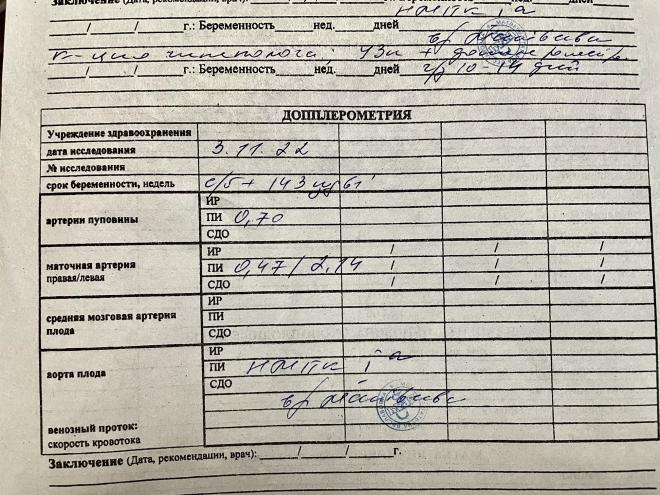 Заключение (Дата, рекомендации, врач): Беременность нед. дней
НМПК Iа
/ / г.: Беременность нед. дней
к-ция гинеколога; УЗи + доплерометр.
/ / г.: Беременность нед. дней ч/з 10-14 дней
ДОППЛЕРОМЕТРИЯ
Учреждение здравоохранения
дата исследования 3.11.22
№ исследования
срок беременности, недель с/б + 143 уд/
артерии пуповины ИР
ПИ 0,70
СДО
маточная артерия ИР / / /
правая/левая ПИ 0,47/2,14 / / /
СДО / / /
средняя мозговая артерия ИР
плода ПИ
СДО
ИР
аорта плода ПИ НМПК Iа
СДО
вр
венозный проток:
скорость кровотока
Заключение (Дата, рекомендации, врач): / / г.